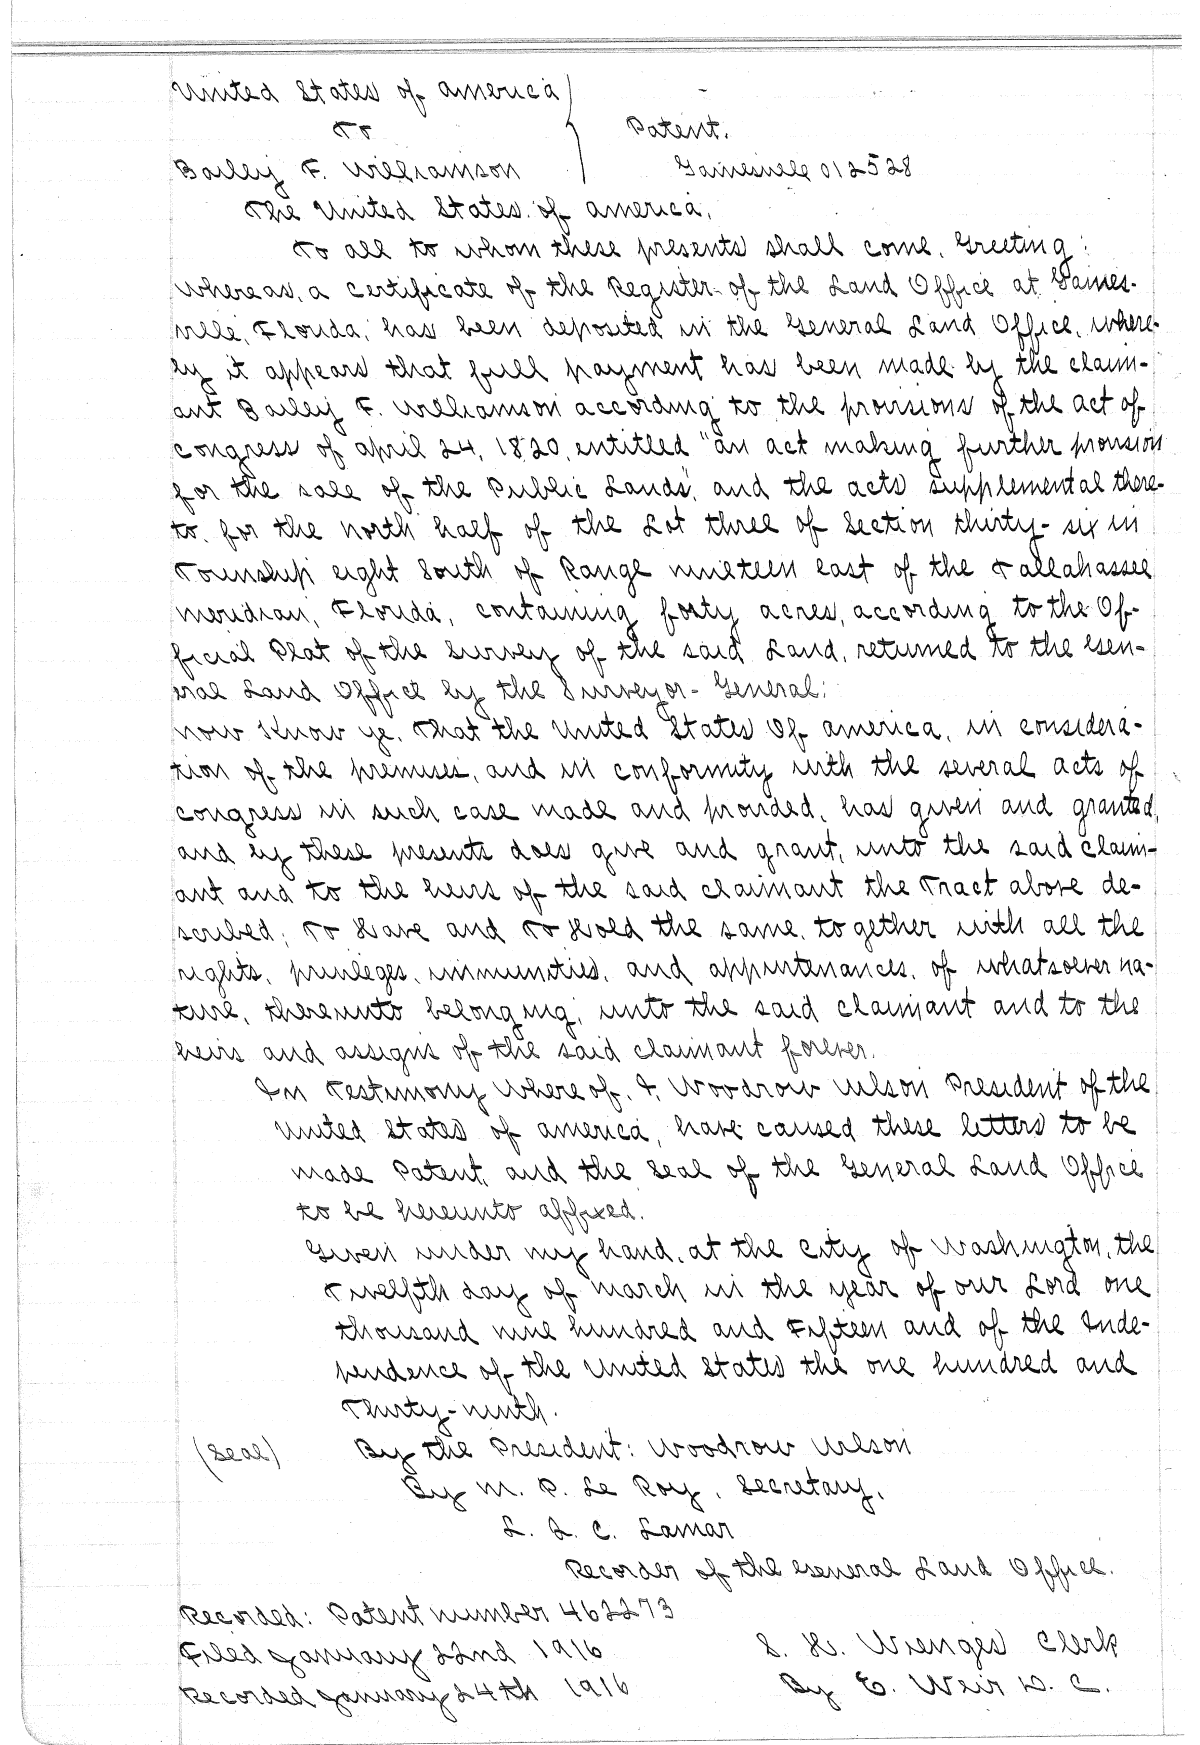 United States of America
To Patent.
Bailey F. Williamson Gainesville 012528
The United States of America,
To all to whom these presents shall come, Greeting:
Whereas, a certificate of the Register of the Land Office at Gaines-
ville, Florida, has been deposited in the General Land Office, where-
by it appears that full payment has been made by the claim-
ant Bailey F. Williamson according to the provisions of the Act of
Congress of April 24, 1820, entitled "An act making further provision
for the sale of the Public Lands", and the acts supplemental there-
to, for the north half of the Lot three of Section thirty-six in
Township eight South of Range nineteen east of the Tallahassee
Meridian, Florida, containing forty acres, according to the Of-
ficial Plat of the Survey of the said Land, returned to the Gen-
eral Land Office by the Surveyor-General:
Now Know ye, That the United States Of America, in considera-
tion of the premises, and in conformity with the several Acts of
Congress in such case made and provided, has given and granted,
and by these presents does give and grant, unto the said claim-
ant and to the heirs of the said claimant the Tract above de-
scribed; To Have and To Hold the same, together with all the
rights, privileges, immunities, and appurtenances, of whatsoever na-
ture, thereunto belonging, unto the said claimant and to the
heirs and assigns of the said claimant forever.
In Testimony Whereof, I, Woodrow Wilson President of the
United States of America, have caused these letters to be
made Patent, and the Seal of the General Land Office
to be hereunto affixed.
Given under my hand, at the City of Washington, the
Twelfth day of March in the year of our Lord one
thousand nine hundred and Fifteen and of the Inde-
pendence of the United States the one hundred and
Thirty-ninth.
(Seal) By the President: Woodrow Wilson
By M. P. Le Roy, Secretary,
L. Q. C. Lamar
Recorder of the General Land Office.
Recorded: Patent number 462273
Filed January 22nd 1916 S. H. Wienges Clerk
Recorded January 24th 1916 By E. Weir D. C.